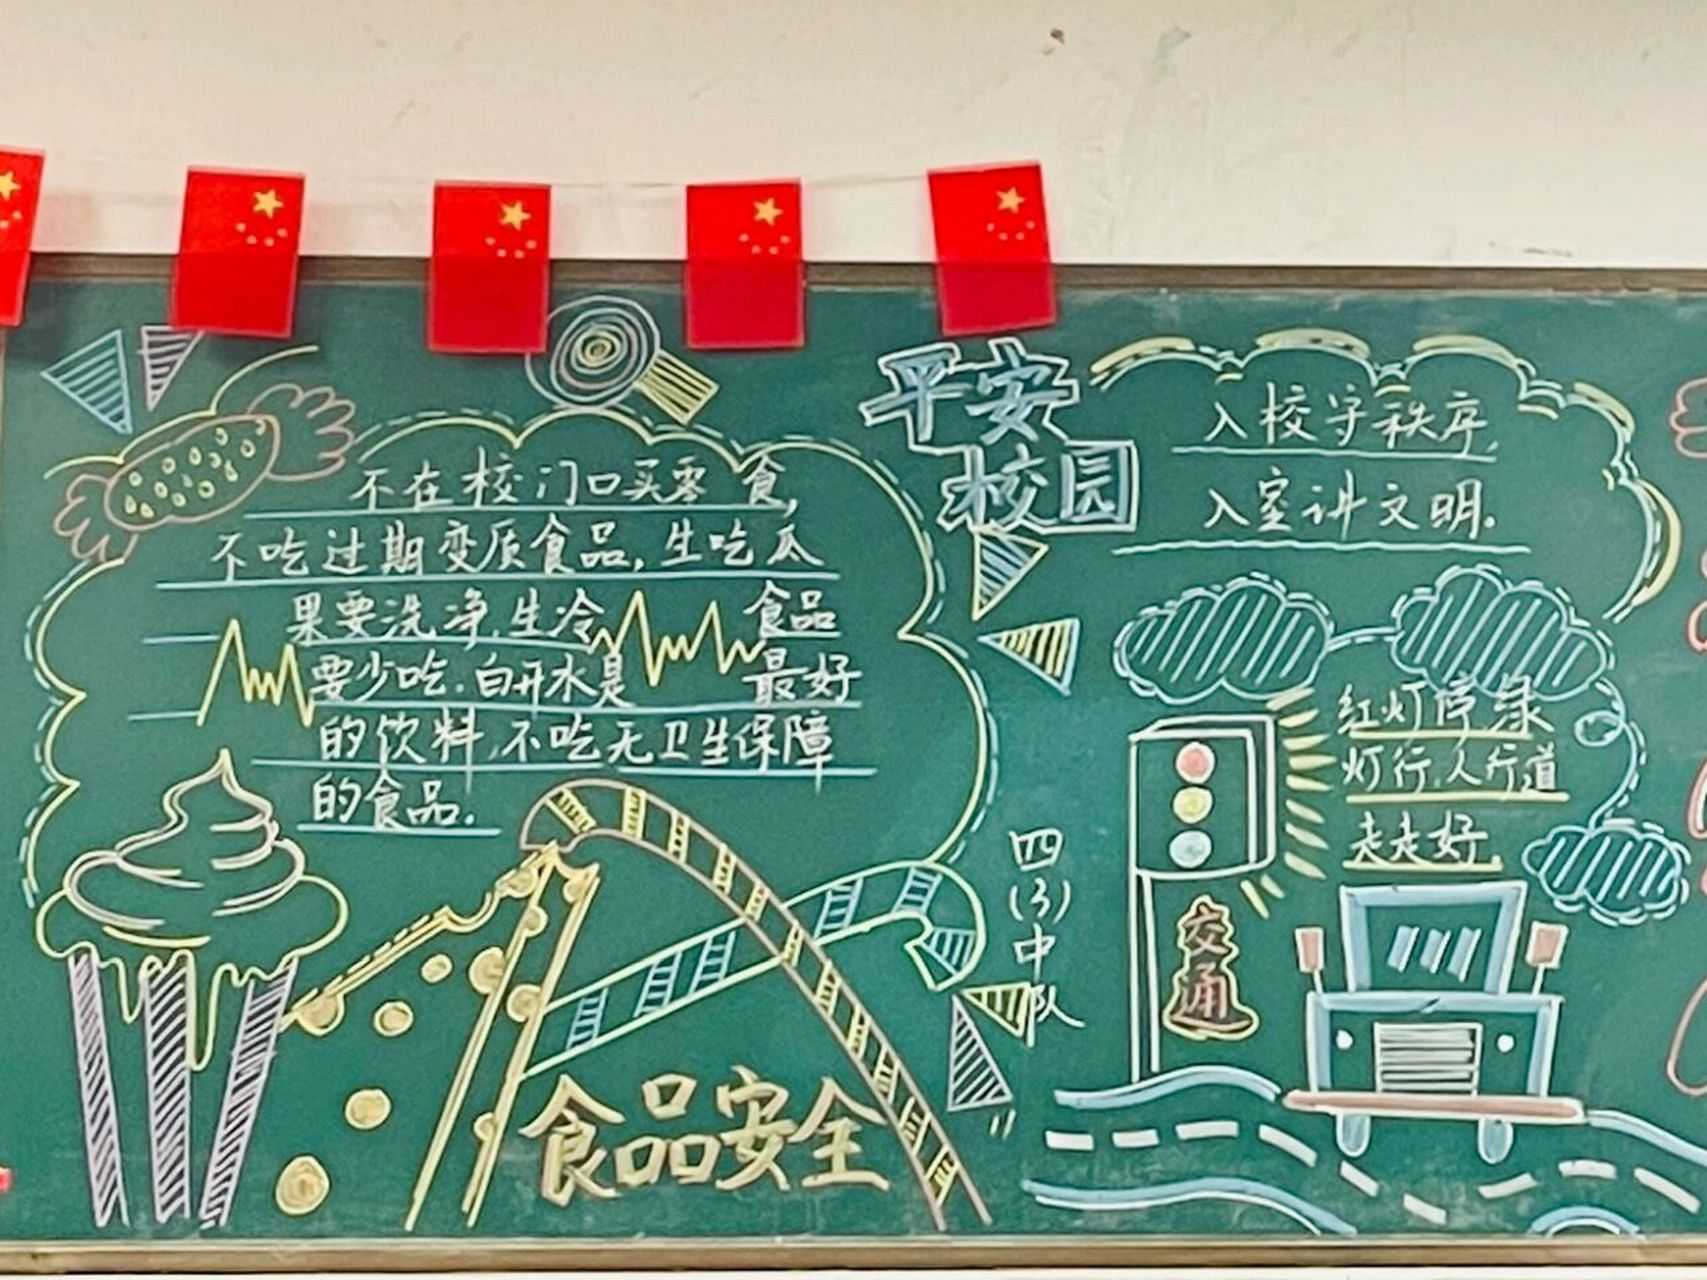 不在校门口买零食,
不吃过期变质食品,生吃瓜
果要洗净,生冷食品
要少吃.白开水是最好
的饮料,不吃无卫生保障
的食品.
食品安全
平安
校园
四(3)中队
入校守秩序,
入室讲文明.
红灯停绿
灯行,人行道
走走好.
交通